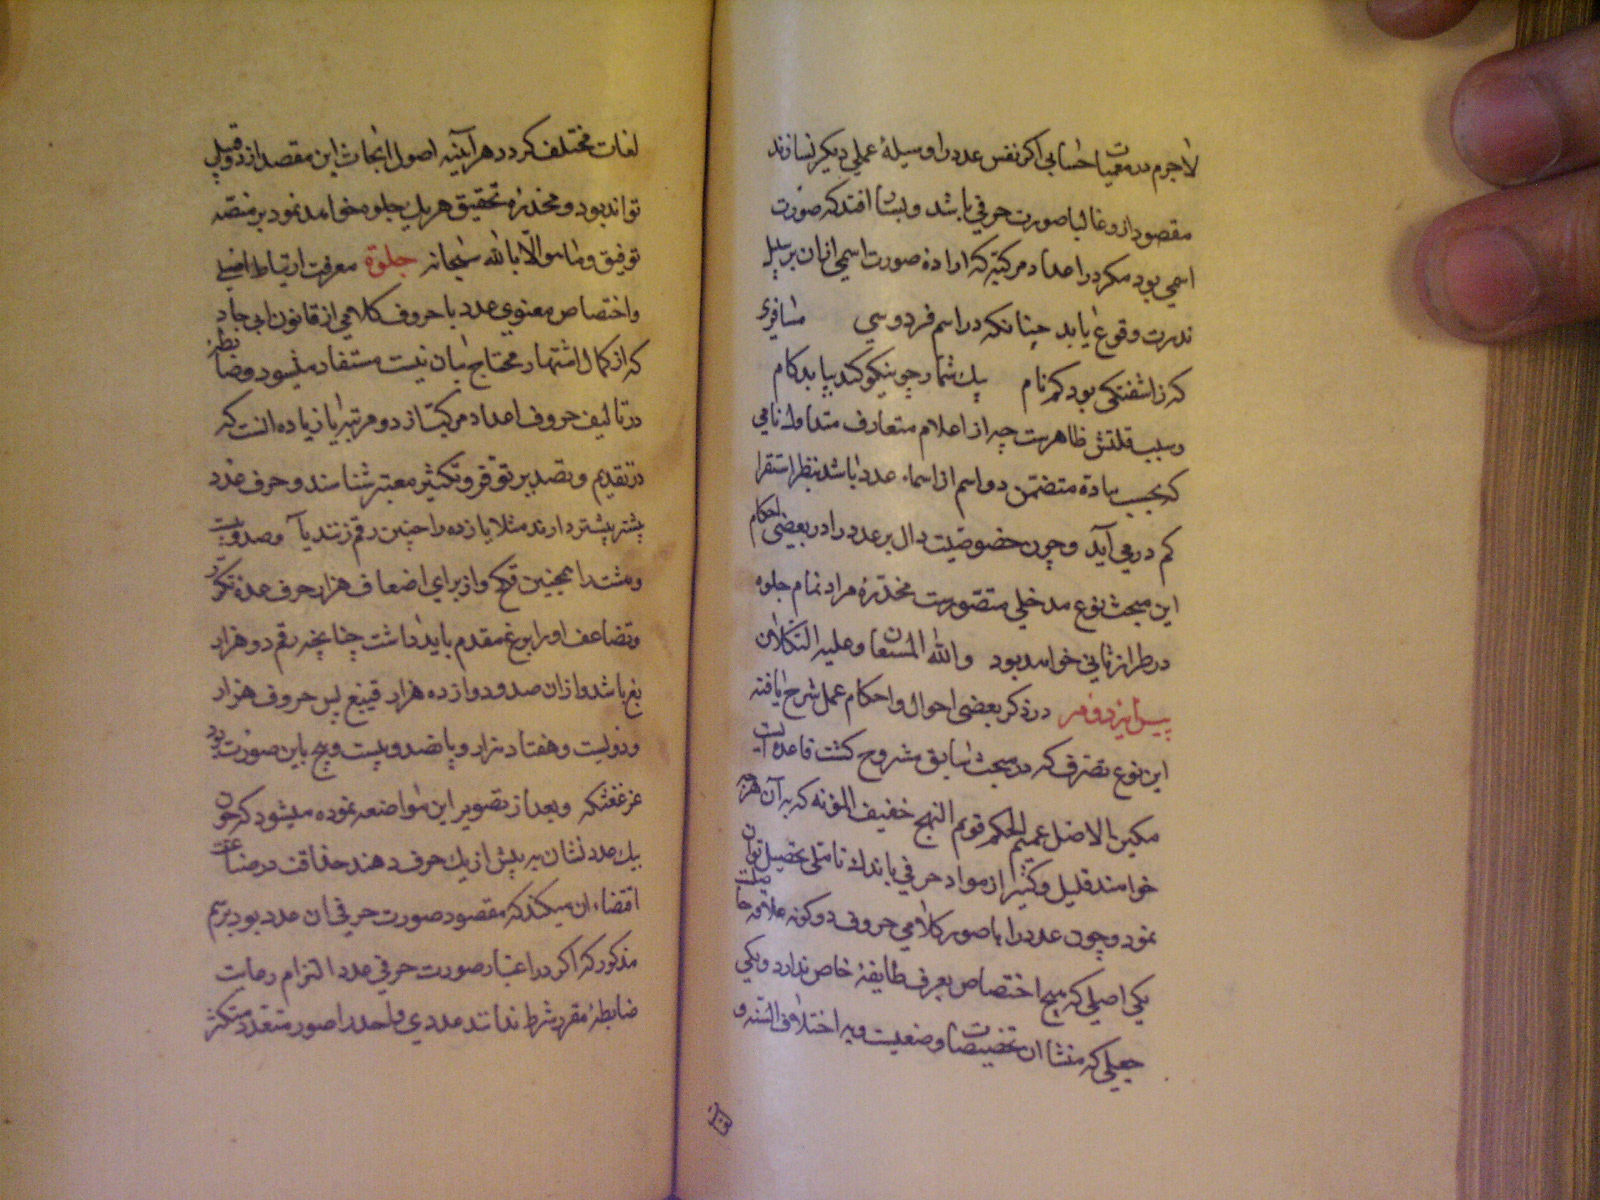 لاجرم در معمیات حسابی اکر نفس عدد را وسیلهٔ عملی دیکر نسازند
مقصود ازو غالبا صورت حرفی باشد و بسا افتد که صورت
اسمی بود مکر در اعداد مرکبه که ارادهٔ صورت اسمی ازان بر سبیل
ندرت وقوع یابد چنانکه در اسم فردوسی مسافری
که ز اشفتکی بود کم نام یک شمار چو نیکو کند بیابد کام
و سبب قلتش ظاهرست چه از اعلام متعارف متداول نامی
که بحسب ماده متضمن دو اسم از اسماء عدد باشد بنظر استقرا
کم درمی آید و چون خصوصیت دال بر عدد را در بعضی احکام
این مبحث نوع مدخلی متصورست مخدرهٔ مراد تمام جلوه
در طراز ثانی خواهد بود والله المستعان و علیه التکلان
پیرایه دوم در ذکر بعضی احوال و احکام عمل شرح یافته
این نوع تصرف که در مبحث سابق مشروح کشت قاعده ایست
مکین الاصل عمیم الحکم قویم النهج خفیف المؤنه که به آن هرچه
خواهند قلیل و کثیر از مواد حرفی باندک تاملی تحصیل توان
نمود و چون عدد را با صور کلامی حروف دو کونه علاقه حاصلست
یکی اصیلی که هیچ اختصاص بعرف طایفهٔ خاص ندارد و یکی
جعلی که منشا ان تخصیصات وضعیست و به اختلاف السنه و
لغات مختلف کردد هر آیینه اصول ابحاث این مقصد از دو قبیل
تواند بود و مخدرهٔ تحقیق هر یک جلوه خواهد نمود بر منصه
توفیق و ما هو الا بالله سبحانه جلوة معرفت ارتباط اصلی
و اختصاص معنوی عدد با حروف کلامی از قانون ابی جاد
که از کمال اشتهار محتاج بیان نیست مستفاد میشود و ضابطه
در تالیف حروف اعداد مرکب از دو مرتبه یا زیاده انست که
در تقدیم و تصدیر توفر و تکثیر معتبر شناسند و حرف عدد
بیشتر پیشتر دارند مثلا یازده را چنین رقم زنند یآ و صد و بیست
و هشت را همچنین قکح و از برای اضعاف هزار حرف عدد تکرر
و تضاعف او را بر غ مقدم باید داشت چنانچه رقم دو هزار
بغ باشد و ازان صد و دوازده هزار قیبغ پس حروف هزار
و دویست و هفتاد هزار و پانصد و بیست و پنج باین صورت بود
غرغعثکه و بعد از تصویر این مواضعه نموده میشود که چون
یک عدد نشان به بیش از یک حرف دهند حذاقت در صناعت
اقتضاء ان میکند که مقصود صورت حرفی ان عدد بود برسم
مذکور که اکر در اعتبار صورت حرفی عدد التزام رعایت
ضابطهٔ مقرر شرط ندانند عددی واحد را صور متعدد متکثر